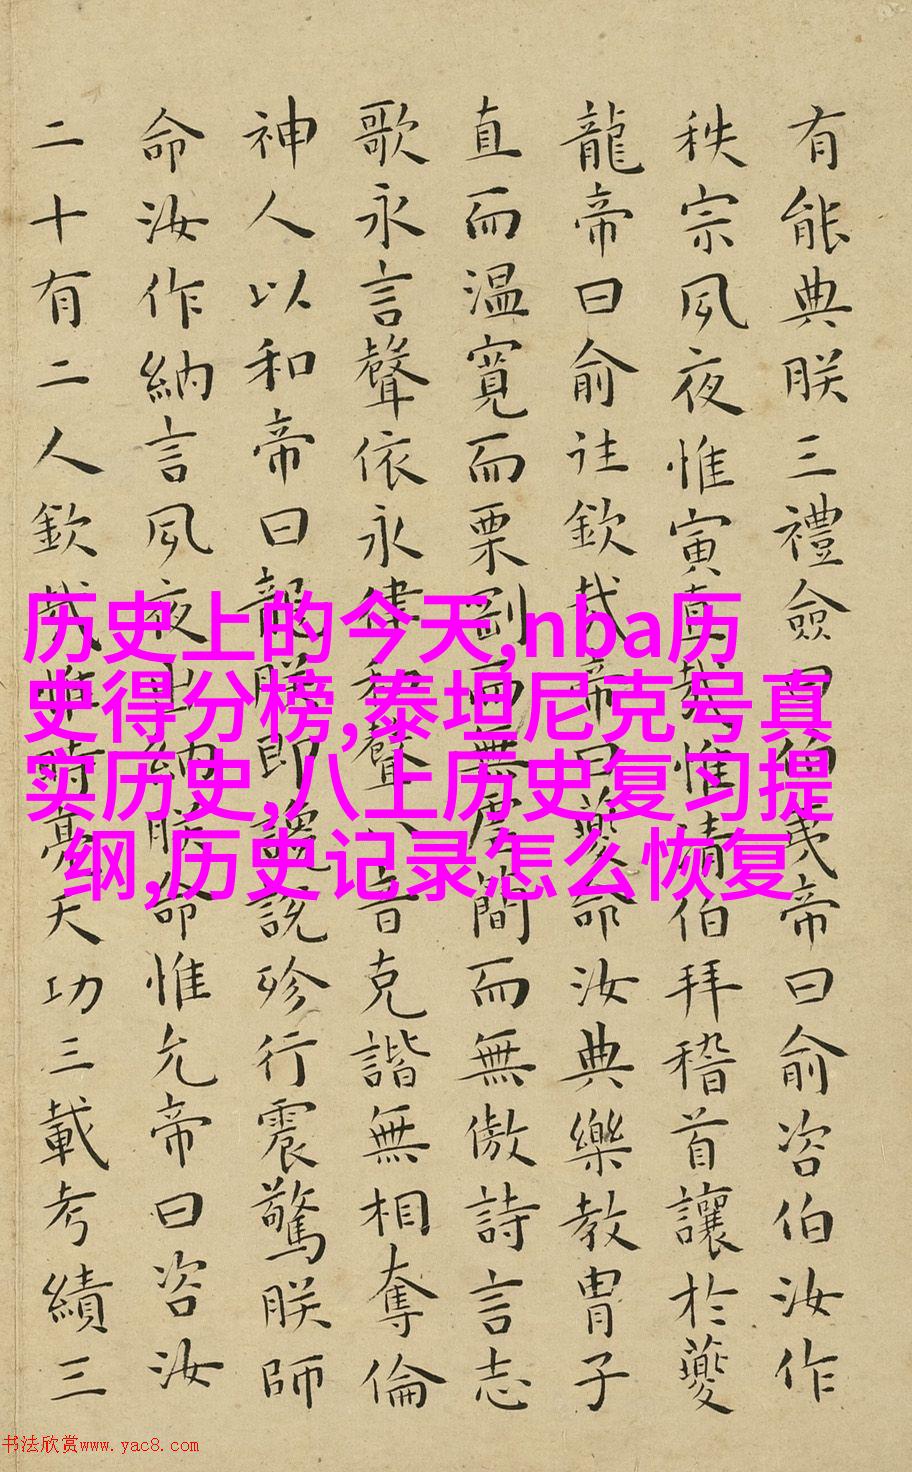 有能典朕三禮僉曰伯夷帝曰俞咨伯汝作
秩宗夙夜惟寅直哉惟清伯拜稽首讓於夔
龍帝曰俞往欽哉帝曰夔命汝典樂教冑子
直而温寬而栗剛而無虐簡而無傲詩言志
歌永言聲依永律和聲八音克諧無相奪倫
神人以和帝曰龍朕堲讒說殄行震驚朕師
命汝作納言夙夜出納朕命惟允帝曰咨汝
二十有二人欽哉惟時亮天功三載考績三
历史上的今天,nba历
史得分榜,泰坦尼克号真
实历史,八上历史复习提
纲,历史记录怎么恢复
书法欣赏www.yac8.com